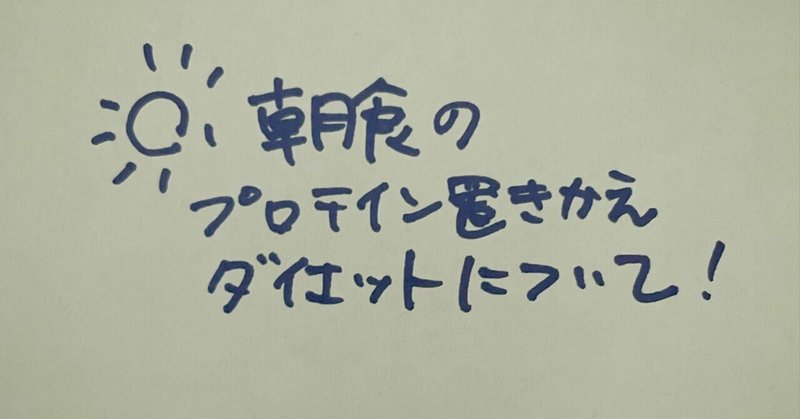 朝食の
プロテイン置きかえ
ダイエットについて!